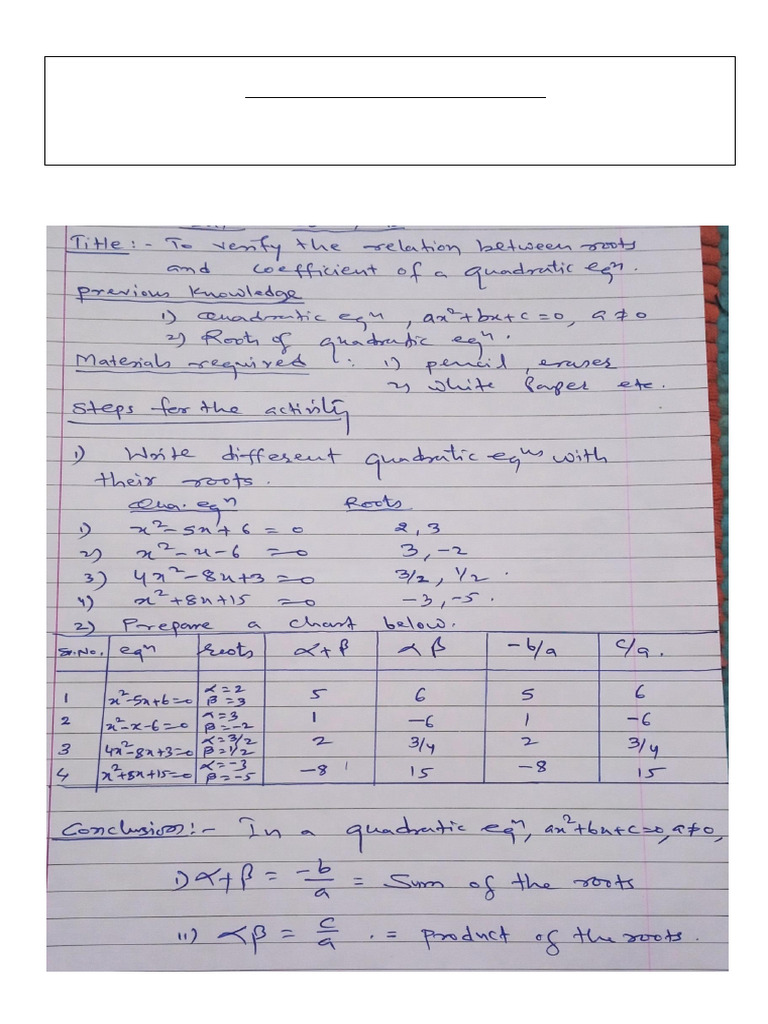 Title:- To verify the relation between roots
and coefficient of a quadratic eqⁿ.
previous knowledge
1) Quadratic eqⁿ, ax²+bx+c=0, a≠0
2) Roots of quadratic eqⁿ.
Materials required : 1) pencil, eraser
2) White Paper etc.
Steps for the activity
1) Write different quadratic eqⁿˢ with
their roots.
Qua. eqⁿ Roots
1) x²-5x+6=0 2, 3
2) x²-x-6=0 3, -2
3) 4x²-8x+3=0 3/2, 1/2.
4) x²+8x+15=0 -3, -5.
2) Prepare a chart below.
Sr.No. eqⁿ Roots α+β αβ -b/a c/a.
1 x²-5x+6=0 α=2 β=3 5 6 5 6
2 x²-x-6=0 α=3 β=-2 1 -6 1 -6
3 4x²-8x+3=0 α=3/2 β=1/2 2 3/4 2 3/4
4 x²+8x+15=0 α=-3 β=-5 -8 15 -8 15
Conclusion:- In a quadratic eqⁿ, ax²+bx+c=0, a≠0,
i) α+β = -b/a = Sum of the roots
ii) αβ = c/a . = product of the roots.